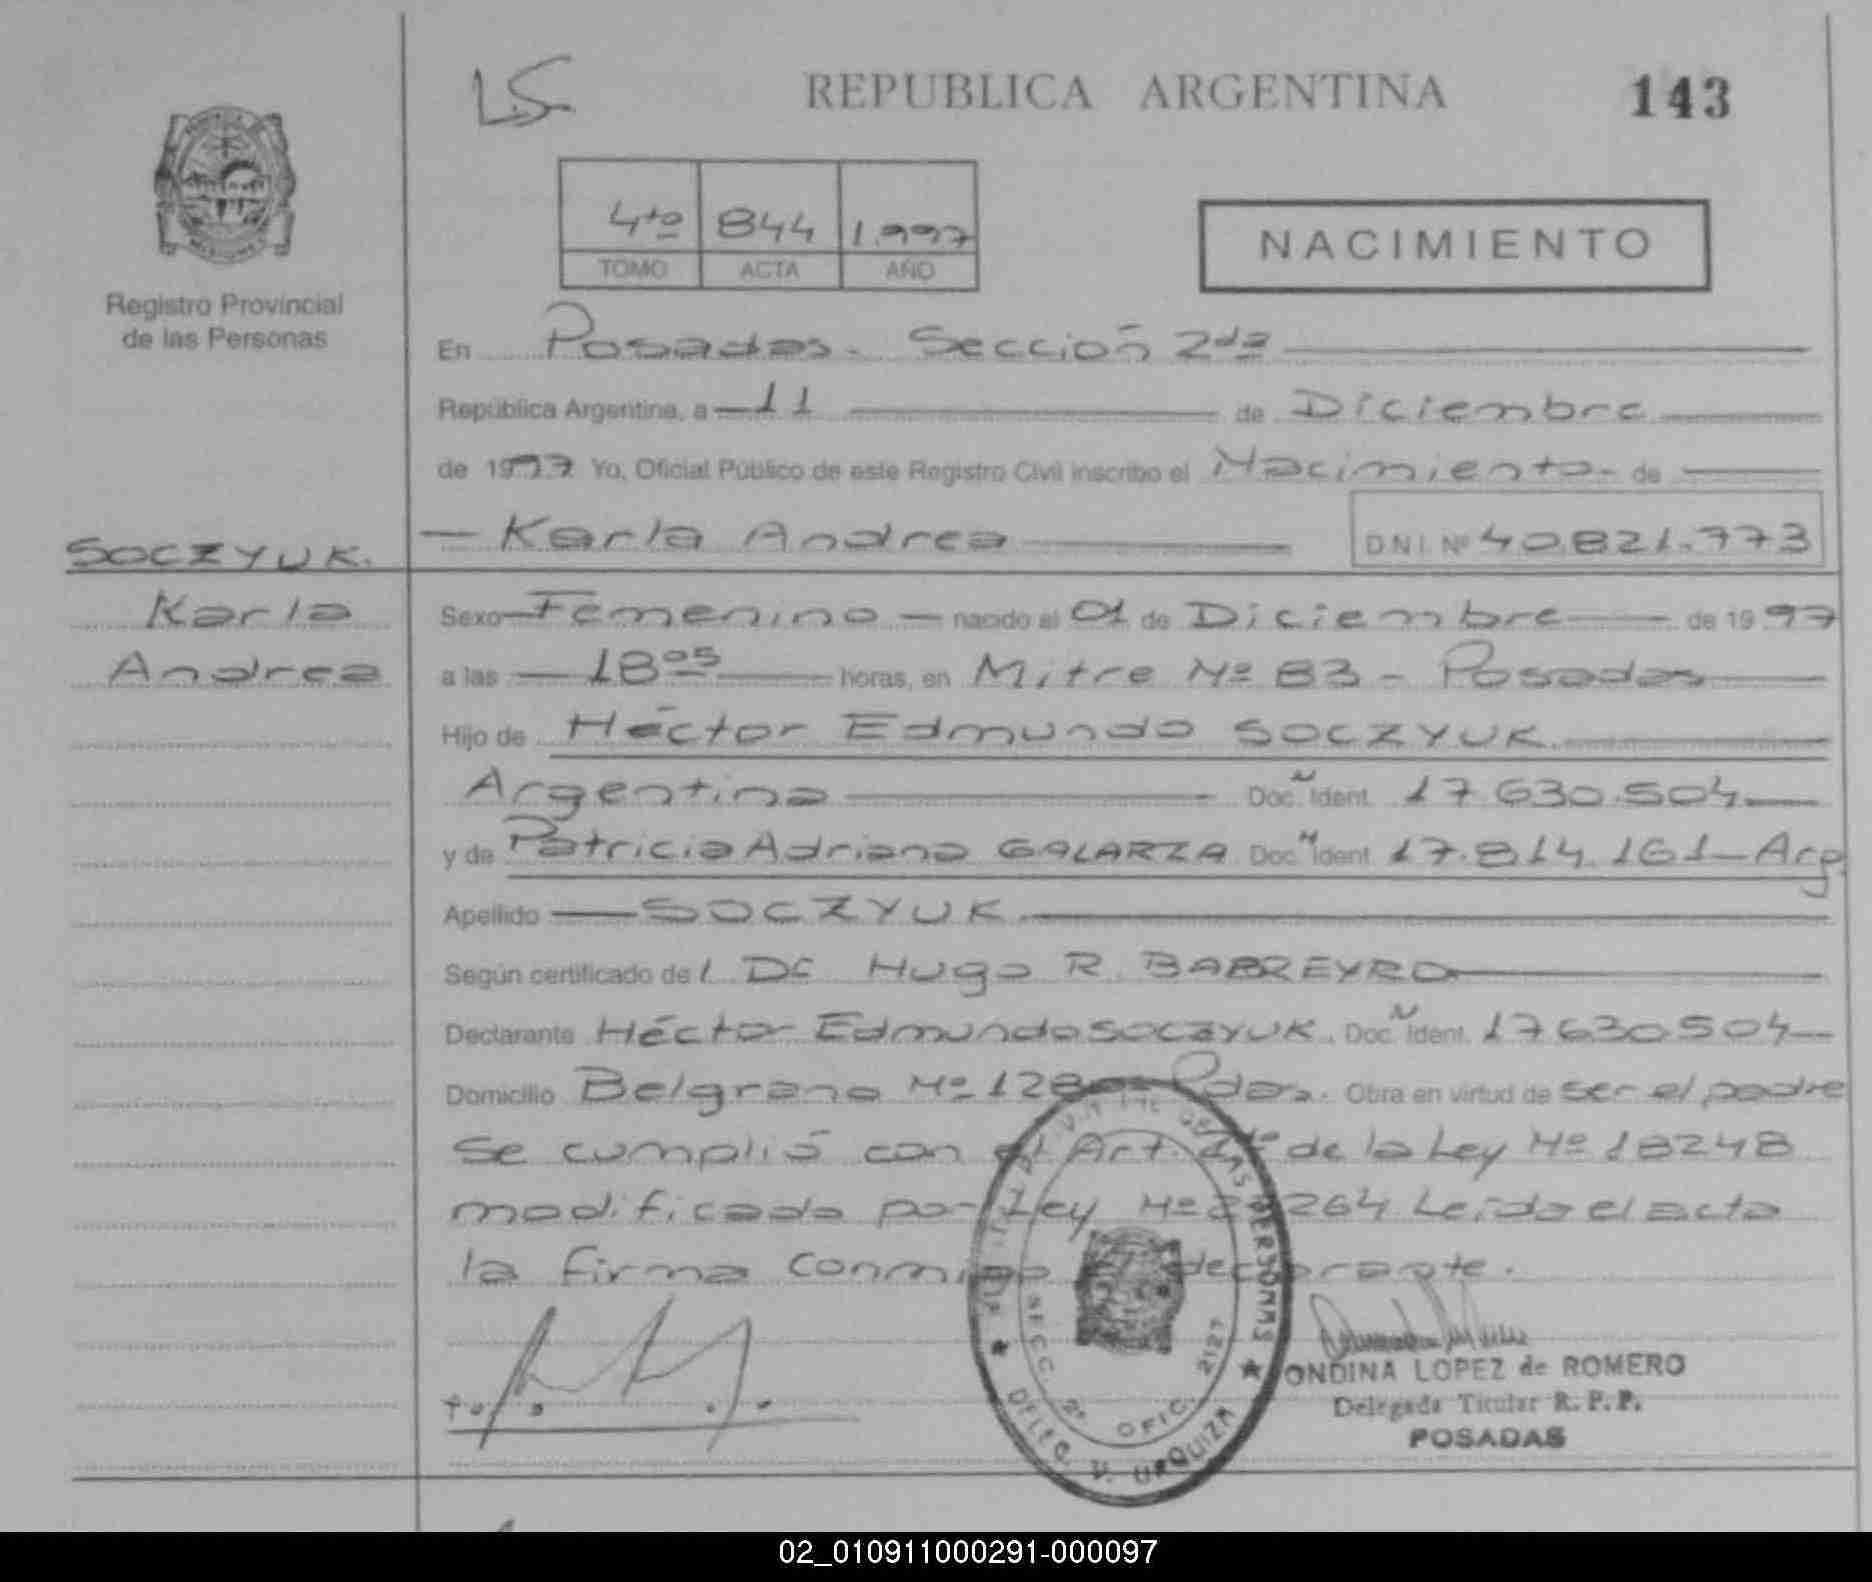 LS
REPUBLICA ARGENTINA
143
4to 844 1.997
TOMO ACTA AÑO
NACIMIENTO
Registro Provincial
de las Personas
En Posadas. Sección 2da
República Argentina, a 11 de Diciembre
de 1997 Yo, Oficial Público de este Registro Civil inscribo el Nacimiento de
Karla Andrea D.N.I. Nº 40.821.773
SOCZYUK.
Karla
Andrea
Sexo Femenino nacido el 01 de Diciembre de 1997
a las 18 05 horas, en Mitre Nº 83 - Posadas
Hijo de Héctor Edmundo SOCZYUK.
Argentina Doc. Ident. 17.630.504
y de Patricia Adriana GALARZA Doc. Ident. 17.814.161 - Arg.
Apellido SOCZYUK
Según certificado de l Dr. Hugo R. BABREYRO
Declarante Héctor Edmundo SOCZYUK. Doc. Ident. 17.630.504
Domicilio Belgrano Nº Pdas. Obra en virtud de ser el padre
Se cumplió con el Art. de la Ley Nº 18248
modificada por Ley Nº 264 Leída el acta
la firma conmigo declarante.
PERSONAS
SECC. 2º OFIC. 2127
DELEG. V. URQUIZA
ONDINA LOPEZ de ROMERO
Delegada Titular R.P.P.
POSADAS
02_010911000291-000097